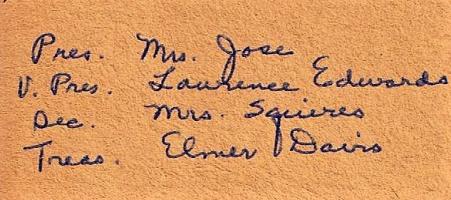 Pres. Mrs. Jose
V. Pres. Lawrence Edwards
Sec. Mrs. Squieres
Treas. Elmer Davis